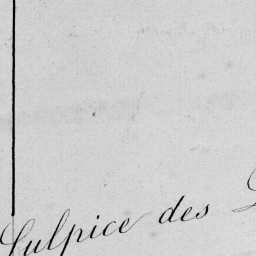 Sulpice des